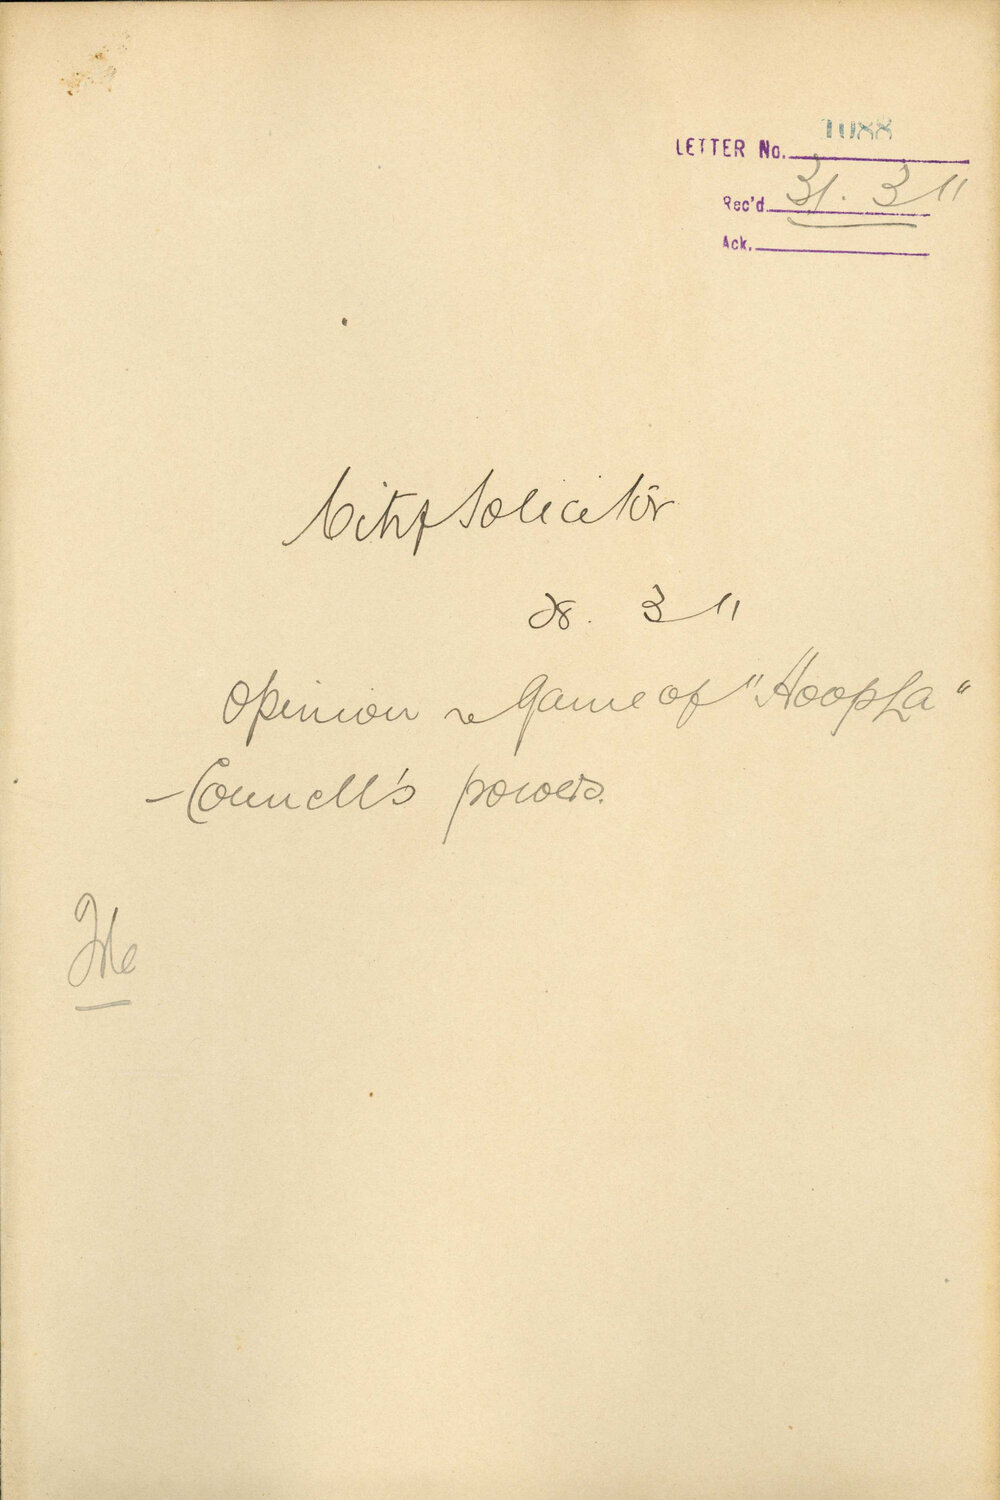 LETTER No. 1088
Rec'd 31. 3 11
Ack.
City Solicitor
28. 3 11
Opinion re Game of "Hoop La"
- Council's powers.
File